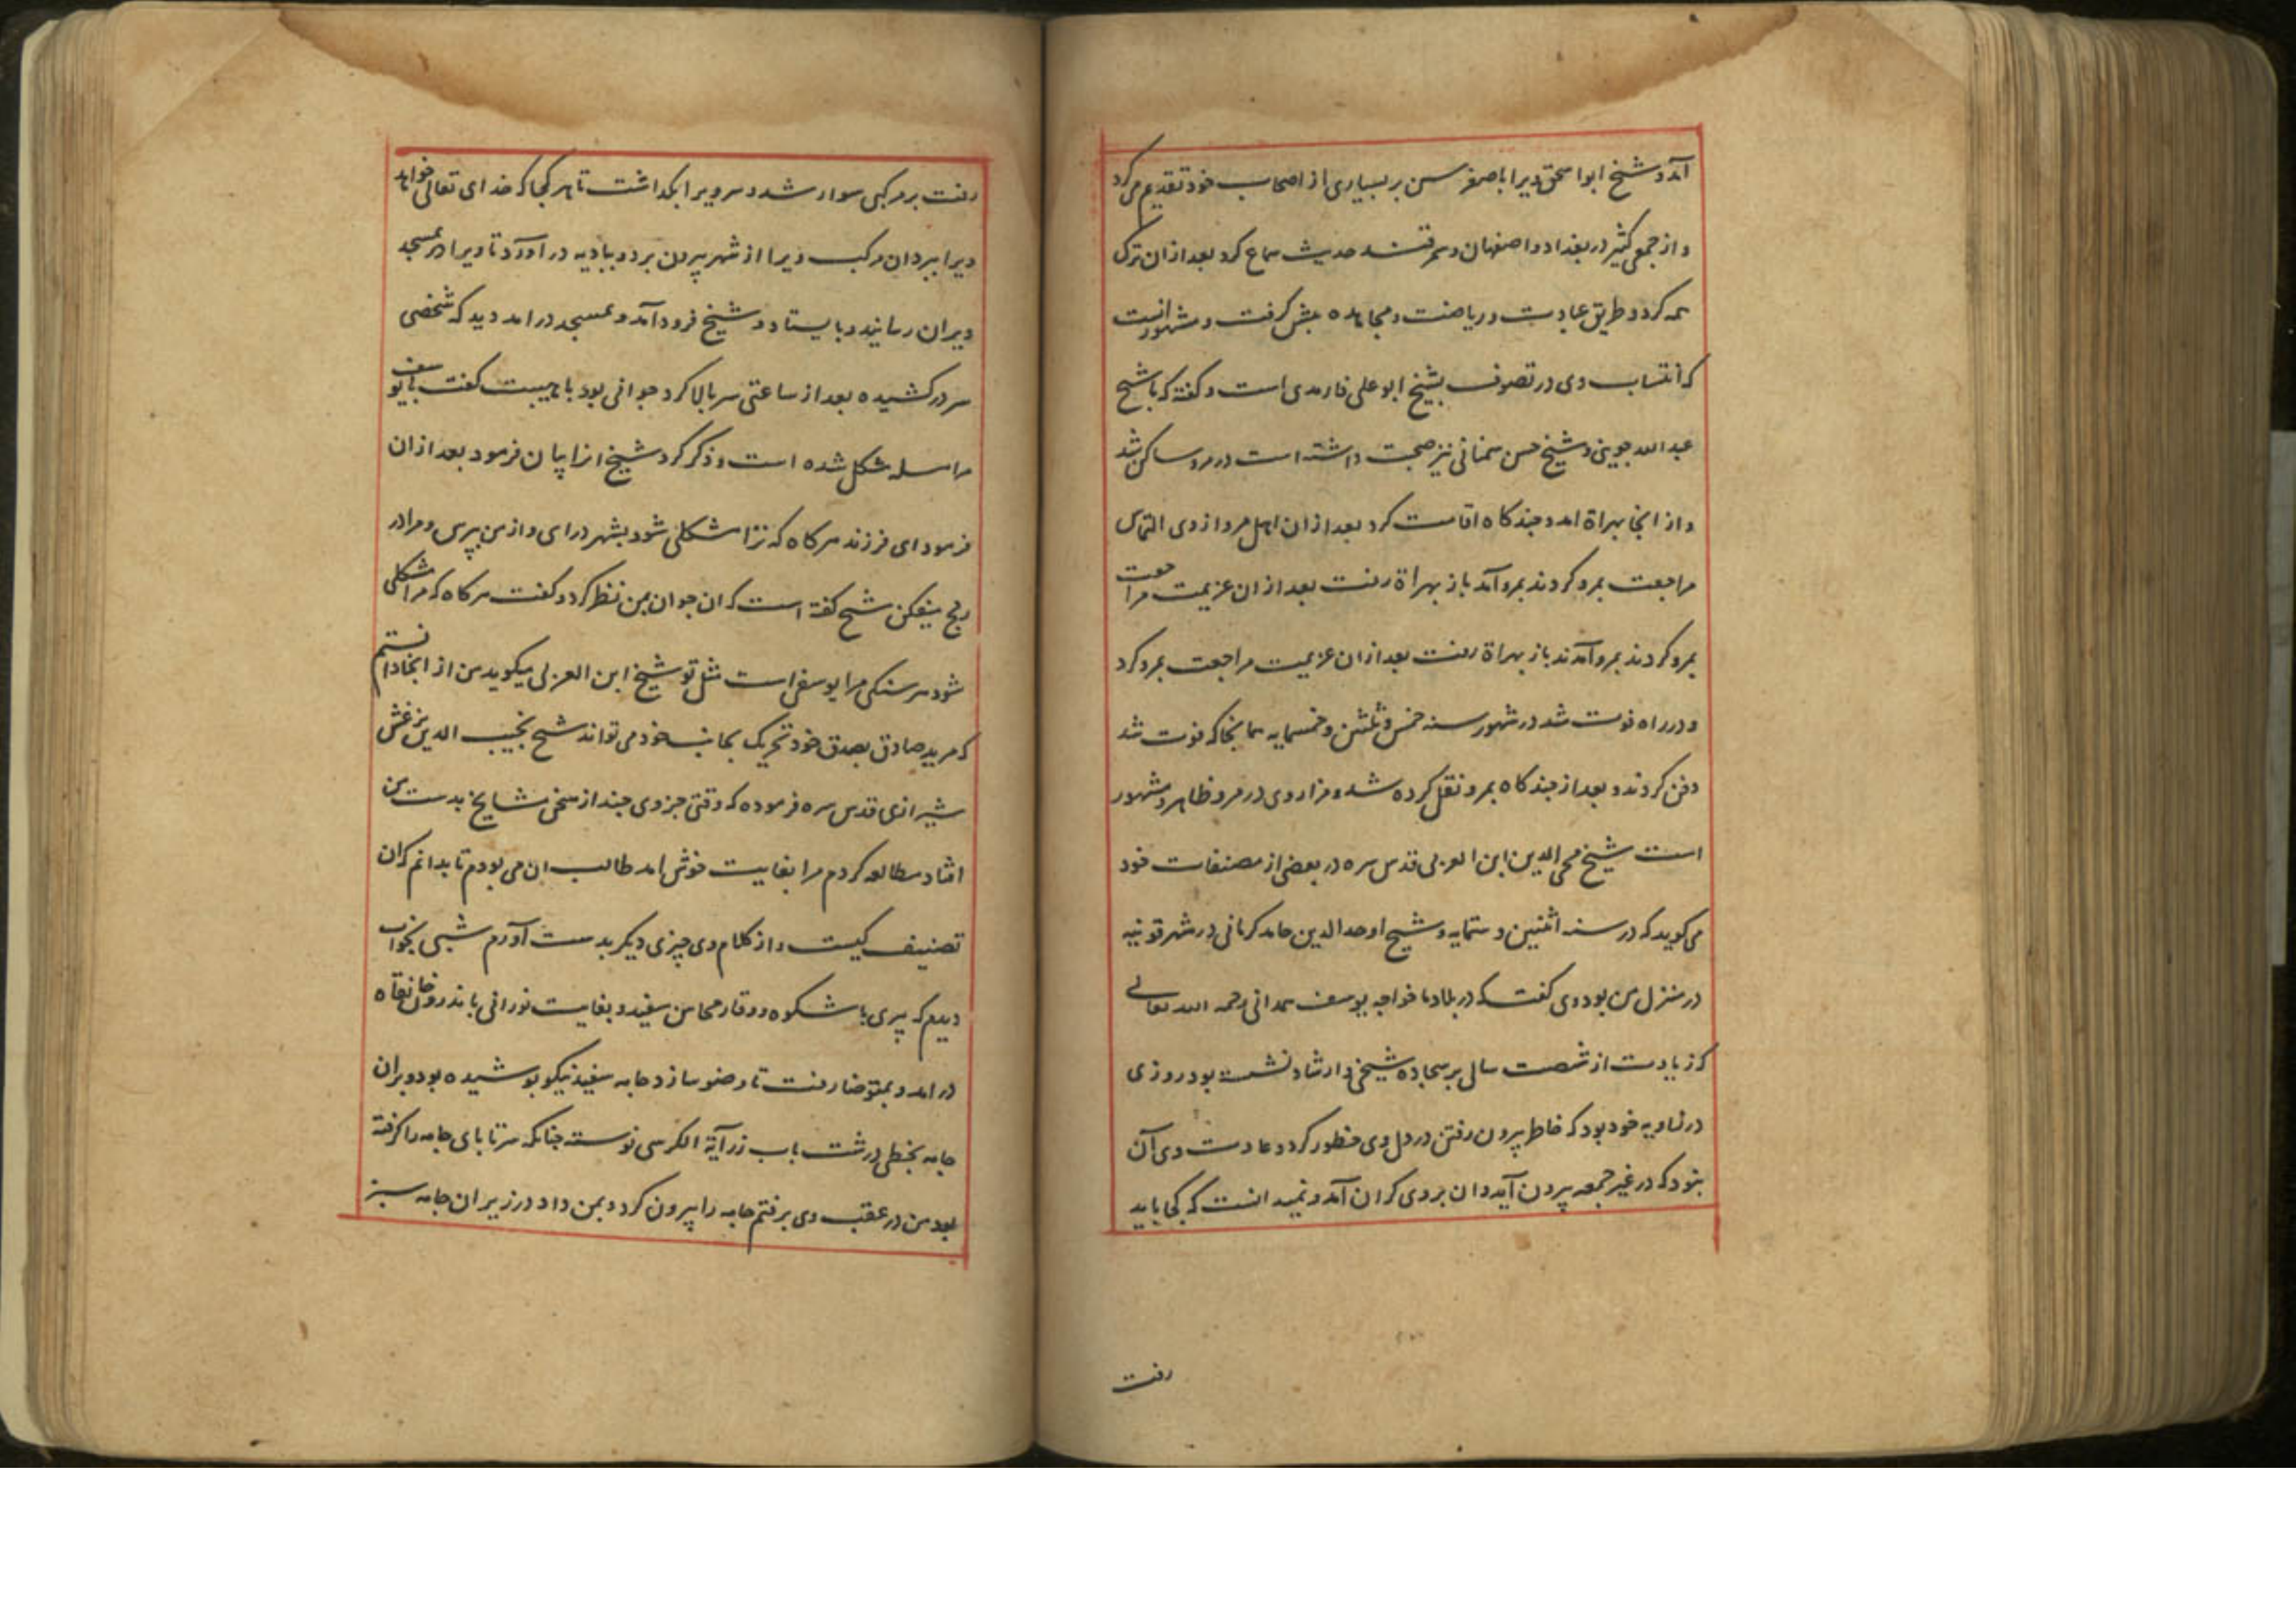 آمد و شیخ ابواسحق ویرا با صغر سن بر بسیاری از اصحاب خود تقدیم می کرد
و از جمعی کثیر در بغداد و اصفهان و سمرقند حدیث سماع کرد بعد از ان ترک
همه کرد و طریق عبادت و ریاضت و مجاهده پیش کرفت و مشهور انست
که انتساب وی در تصوف بشیخ ابو علی فارمدی است و کفته که با شیخ
عبد الله جوینی و شیخ حسن سمنانی نیز صحبت داشته است در مرو ساکن شد
و از انجا بهراة امد و چند کاه اقامت کرد بعد از ان اهل مرو از وی التماس
مراجعت بمرو کردند بمرو آمد باز بهراة رفت بعد از ان عزیمت مراجعت
بمرو کردند بمرو آمدند باز بهراة رفت بعد از ان عزیمت مراجعت بمرو کرد
و در راه فوت شد در شهور سنه خمس و ثلثین و خمسمایه همانجا که فوت شد
دفن کردند و بعد از چند کاه بمرو نقل کرده شد و مزار وی در مرو ظاهر و مشهور
است شیخ محی الدین ابن العربی قدس سره در بعضی از مصنفات خود
می کوید که در سنه اثنین و ستمایه و شیخ اوحد الدین حامد کرمانی در شهر قونیه
در منزل من بود وی کفت که در بلاد ما خواجه یوسف همدانی رحمه الله تعالی
که زیادت از شصت سال بر سجاده شیخی و ارشاد نشسته بود روزی
در زاویه خود بود که خاطر بیرون رفتن در دل وی خطور کرد و عادت وی آن
نبود که در غیر جمعه بیرون آید و ان بر وی کران آمد و نمیدانست که کجا باید
رفت
رفت بر مرکبی سوار شد و سر ویرا بکذاشت تا هر کجا که خدای تعالی خواهد
ویرا ببرد ان مرکب ویرا از شهر بیرون برد و ببادیه در آورد تا ویرا در مسجد
ویران رسانید و بایستاد و شیخ فرود آمد و بمسجد در امد دید که شخصی
سر در کشیده بعد از ساعتی سر بالا کرد جوانی بود با هیبت کفت یا یوسف
مرا مسله مشکل شده است و ذکر کرد شیخ انرا بیان فرمود بعد از ان
فرمود ای فرزند هر کاه که ترا مشکلی شود بشهر در ای و از من بپرس و مرا در
رنج میفکن شیخ کفته است که ان جوان بمن نظر کرد و کفت هر کاه که مرا مشکلی
شود هر سنکی مرا یوسفی است مثل تو شیخ ابن العربی میکوید من از انجا دانستم
که مرید صادق بصدق خود تحریک بجانب خود می تواند شیخ نجیب الدین بزغش
شیرازی قدس سره فرموده که وقتی جزوی چند از سخن مشایخ بدست من
افتاد مطالعه کردم مرا بغایت خوش امد طالب ان می بودم تا بدانم که ان
تصنیف کیست و از کلام وی چیزی دیکر بدست آورم شبی بخواب
دیدم که پیری با شکوه و وقار محاسن سفید و بغایت نورانی باندرون خانقاه
در امد و بمتوضا رفت تا وضو سازد جامه سفید نیکو پوشیده بود و بران
جامه بخطی درشت باب زر آیة الکرسی نوشته چنانکه سر تا پای جامه را کرفته
بود من در عقب وی برفتم جامه را بیرون کرد و بمن داد در زیر ان جامه سبز